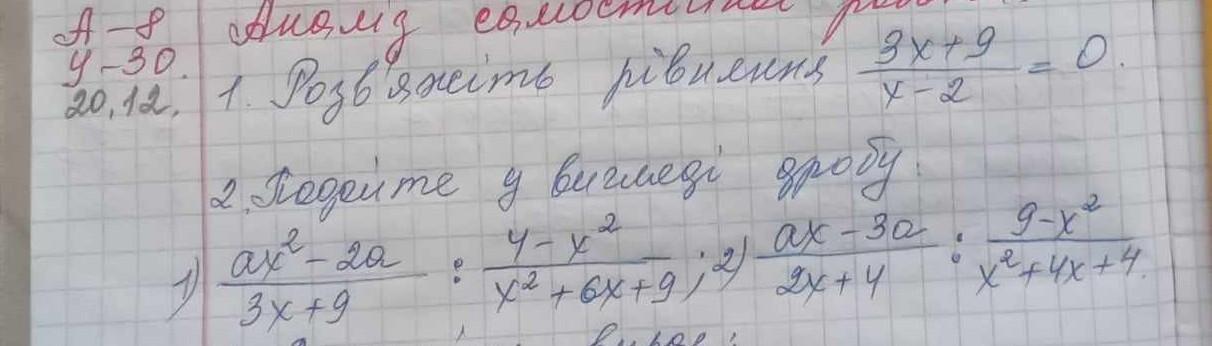 А-8 Аналіз самостійної роботи
У-30.
20.12. 1. Розв'яжіть рівняння (3x+9)/(x-2) = 0.
2. Подайте у вигляді дробу:
1) (ax²-2a)/(3x+9) : (4-x²)/(x²+6x+9); 2) (ax-3a)/(2x+4) : (9-x²)/(x²+4x+4).